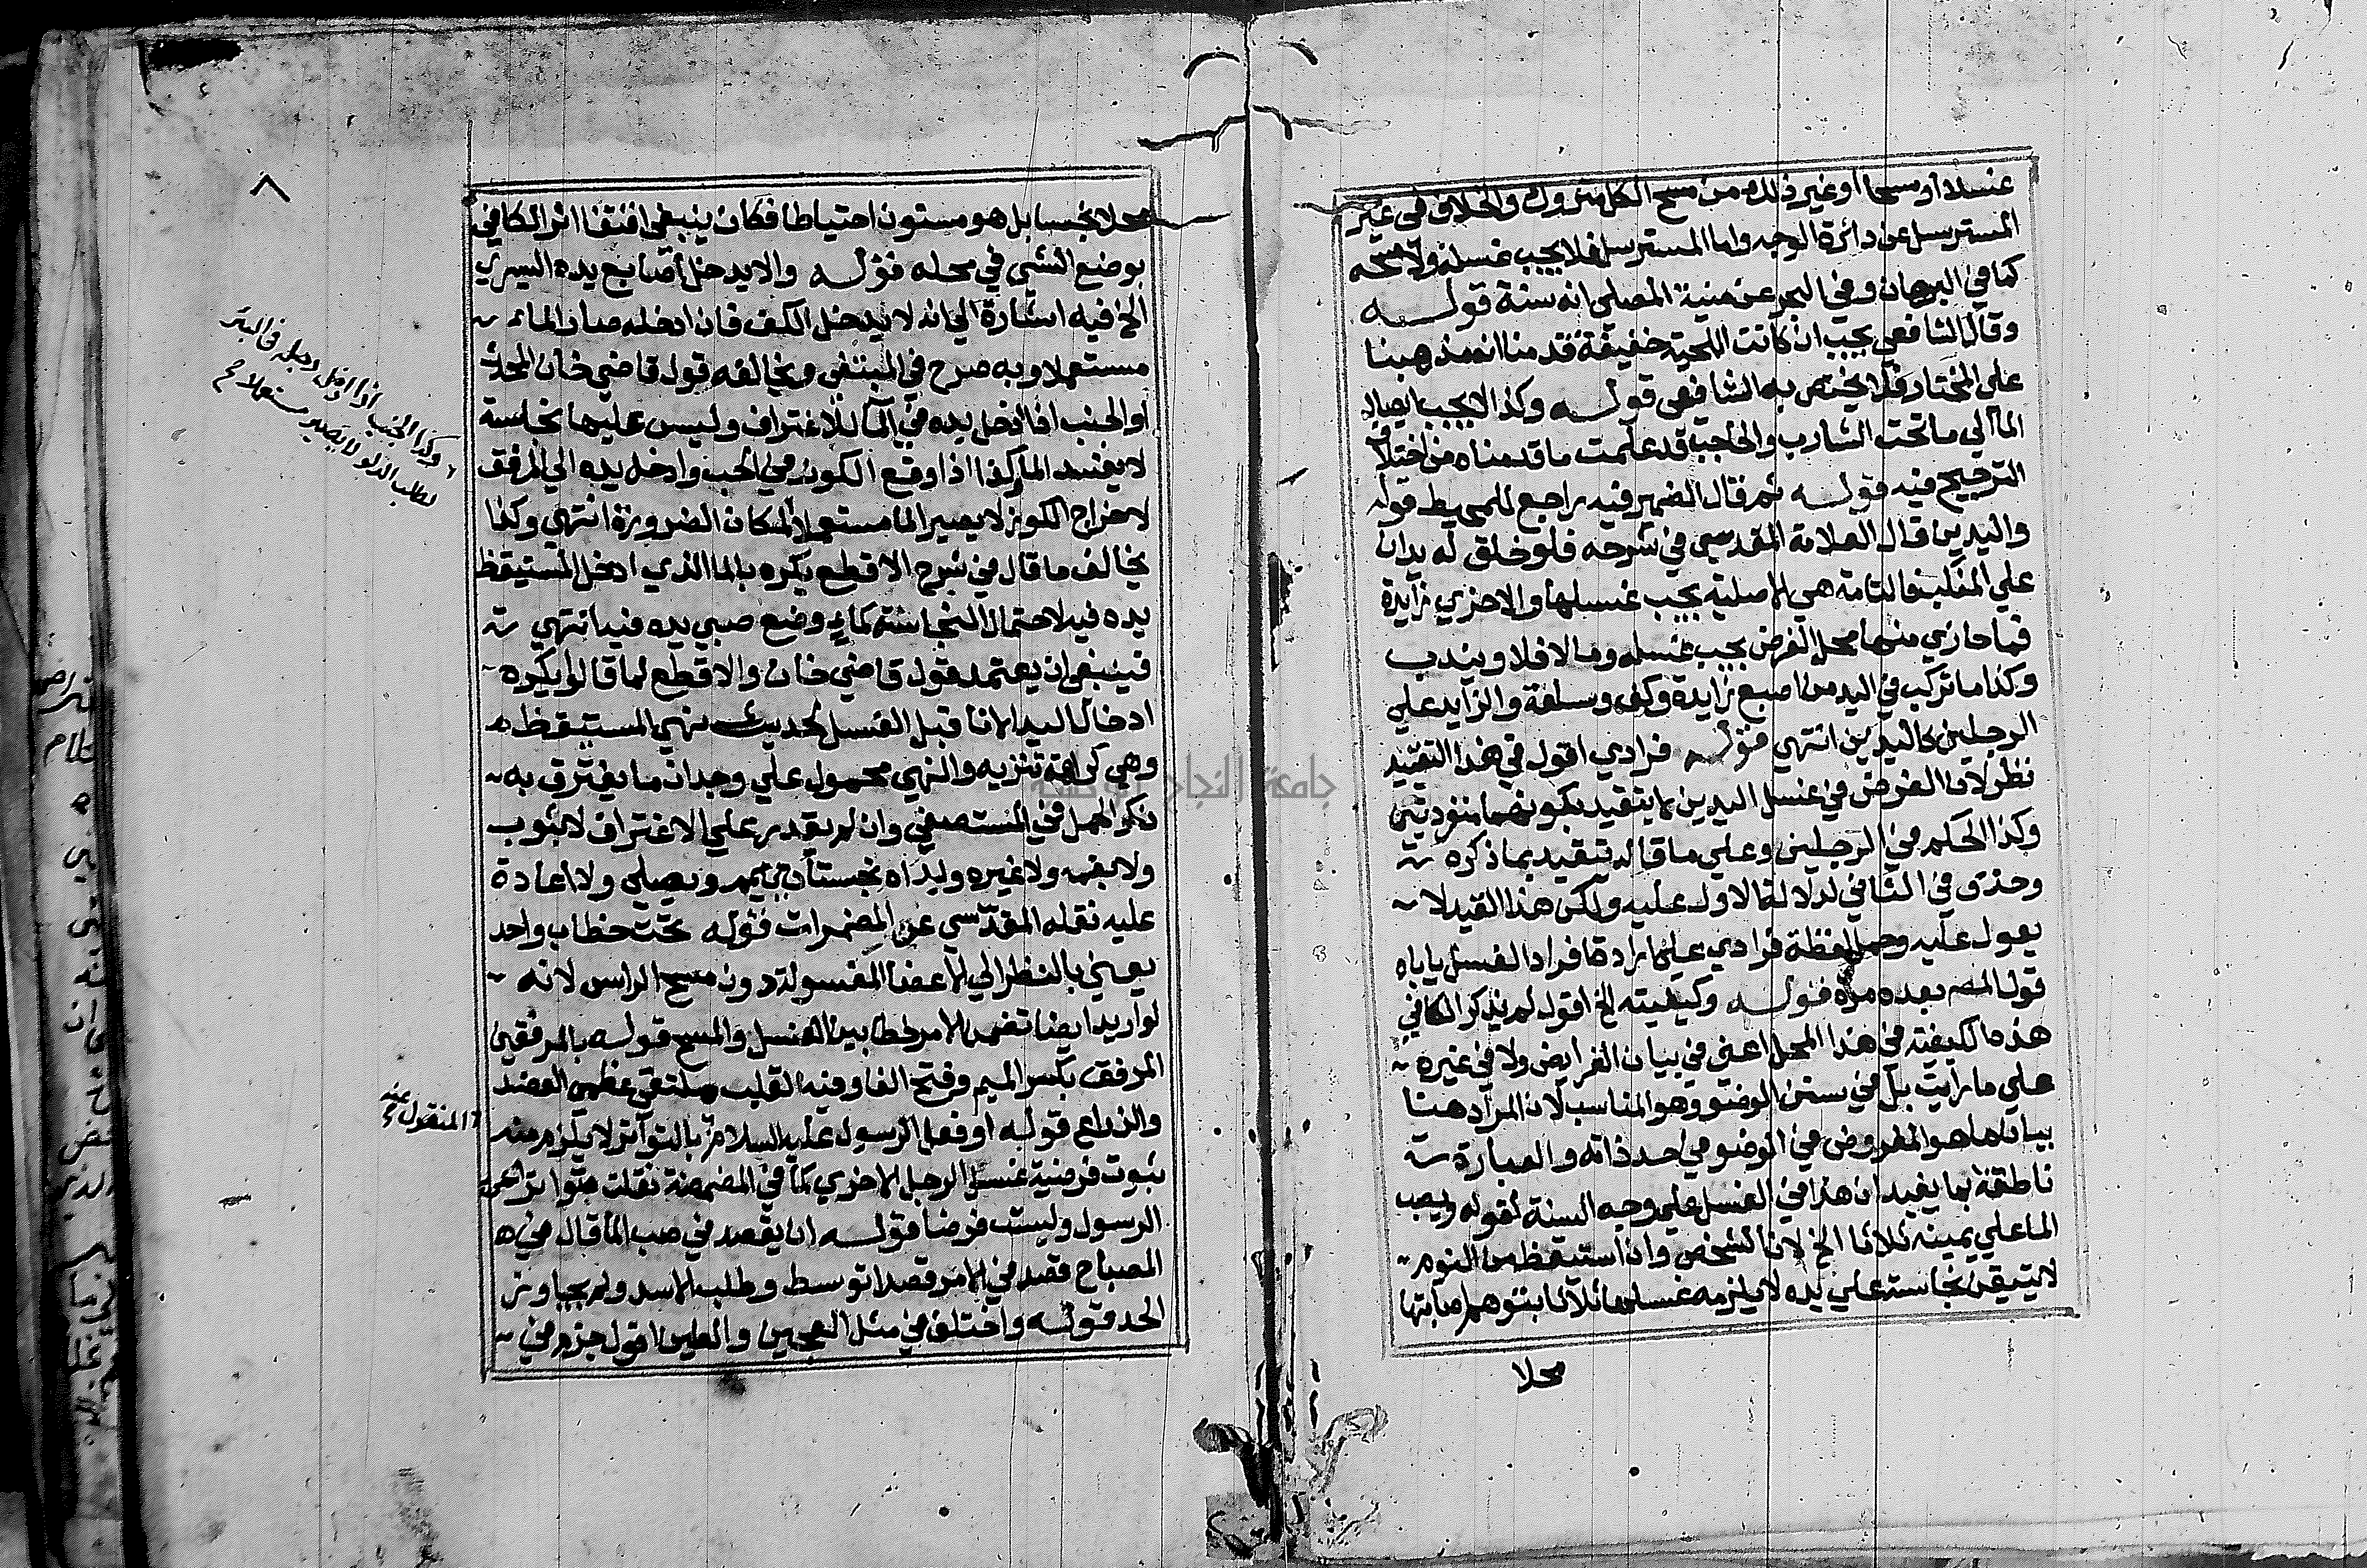 غسلا أو مسحا أو غير ذلك من مسح الكل متروك والخلاف في غير
المسترسل عن دائرة الوجه واما المسترسل فلا يجب غسله ولا مسحه
كما في البرهان وفي البحر عن منية المصلي انه سنة قوله
وقال الشافعي يجب ان كانت اللحية خفيفة قدمنا انه مذهبنا
على المختار فلا يختص به الشافعي قوله وكذا لا يجب ايصال
الماء الي ما تحت الشارب والحاجب قد علمت ما قدمناه من اختلاف
الترجيح فيه قوله ثم قال الضمير فيه راجع للمحيط قوله
واليدين قال العلامة المقدسي في شرحه فلو خلق له يدان
علي المنكب فالتامة هي الاصلية يجب غسلها والاخري زايدة
فما حاذي منها محل الفرض يجب غسله وما لا فلا ويندب
وكذا ما تركب في اليد من اصبع زايدة وكف وسلعة والزايد علي
الرجلين كاليدين انتهي قوله فرادي اقول في هذا التقييد
نظر لان الفرض في غسل اليدين لا يتقيد بكونهما منفردتين
وكذا الحكم في الرجلين وعلي ما قاله تتقيد بما ذكره
وحذف في الثاني لدلالة الاول عليه ولكن هذا القيد لا
يعول عليه وحمل لفظة فرادي على ارادة افراد الغسل ياباه
قول المص بعده مرة قوله وكيفيته الخ اقول لم يذكر الكافي
هذه الكيفية في هذا المحل اعني في بيان الفرايض ولا في غيره
علي ما رأيت بل في سنن الوضو وهو المناسب لان المراد هنا
بيان ما هو المفروض في الوضو في حد ذاته والعبارة
ناطقة بما يفيد ان هذا في الغسل علي وجه السنة لقوله ويصب
الماء علي يمينه ثلاثا الخ لان الشخص وان استيقظ من النوم
لا يتيقن نجاسة علي يده لا يلزمه غسلها ثلاثا بتوهم اصابتها
محلا
٨
محلا نجسا بل هو مسنون احتياطا فكان ينبغي اقتفا اثر الكافي
بوضع الشي في محله قوله والا يدخل أصابع يده اليسري
الخ فيه اشارة الي انه لا يدخل الكف فان ادخله صار الماء
مستعملا وبه صرح في المبتغي ويخالفه قول قاضي خان المحدث
او الجنب اذا ادخل يده في الماء للاغتراف وليس عليها نجاسة
لا يفسد الماء وكذا اذا وقع الكوز في الحب وادخل يده الي المرفق
لاخراج الكوز لا يصير الماء مستعملا لمكان الضرورة انتهي وكذا
يخالف ما قال في شرح الاقطع يكره بالماء الذي ادخل المستيقظ
يده فيه لاحتمال النجاسة كماء وضع صبي يده فيه انتهي
فينبغي ان يعتمد قول قاضي خان والاقطع لما قالوا يكره
ادخال اليد الانا قبل الغسل لحديث نهي المستيقظ
وهي كراهة تنزيه والنهي محمول علي وجدان ما يغترف به
ذكر الحمل في المستصفي وان لم يقدر علي الاغتراف لا بثوب
ولا بفمه ولا غيره ويداه نجستان يتيمم ويصلي ولا اعادة
عليه نقله المقدسي عن المضمرات قوله تحت خطاب واحد
يعني بالنظر الي الاعضا المغسولة دون مسح الراس لانه
لو اريد ايضا تضمن الامر لخطابين الغسل والمسح قوله بالمرفقين
المرفق بكسر الميم وفتح الفا وفيه القلب ملتقي عظمي العضد
والذراع قوله او فعل الرسول عليه السلام بالتواتر لا يلزم منه
ثبوت فرضية غسل الرجل الاخري كما في المضمضة نقلت متواترا عن
الرسول وليست فرضا قوله ان يقصد في صب الماء قال في
المصباح قصد في الامر قصدا توسط وطلب الاسد ولم يجاوز
الحد قوله واختلف في مثل العجين والطين اقول جزم في
وكذا الجنب اذا ادخل رجله في البئر
لطلب الدلو لا يصير مستعملا صح
المنقول عنه
جامعة النجاح